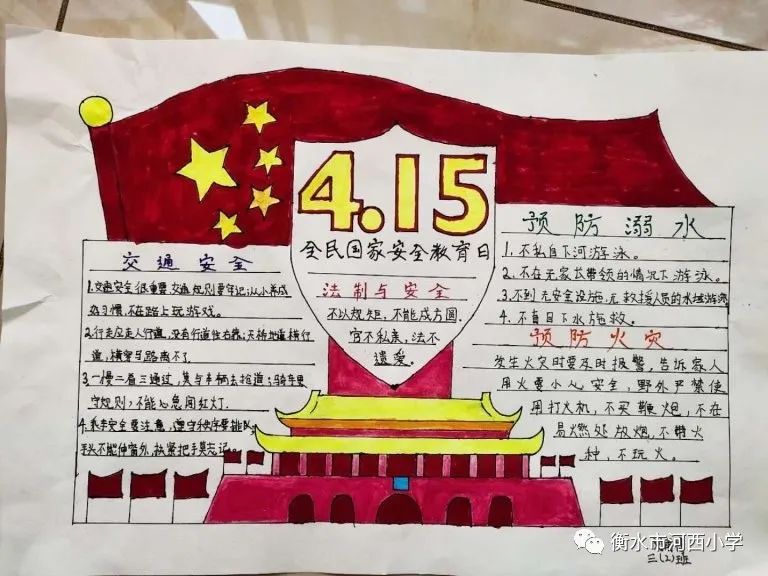 4.15
全民国家安全教育日
法制与安全
不以规矩,不能成方圆.
官不私亲,法不
遗爱。
交通安全
1.交通安全很重要,交通规则要牢记;从小养成
好习惯,不在路上玩游戏。
2.行走应走人行道,没有行道往右靠;天桥地道横行
道,横穿马路离不了.
3.一慢二看三通过,莫与车辆去抢道;骑车更
守规则,不能心急闯红灯.
4.乘车安全要注意,遵守秩序要排队,
手头不能伸窗外,扶紧把手莫忘记.
预防溺水
1.不私自下河游泳。
2.不在无家长带领的情况下游泳。
3.不到无安全设施,无救援人员的水域游泳
4.不盲目下水施救。
预防火灾
发生火灾时要及时报警,告诉家人
用火要小心安全,野外严禁使
用打火机,不买鞭炮,不在
易燃处放烟,不带火
种,不玩火。
三(2)班
衡水市河西小学